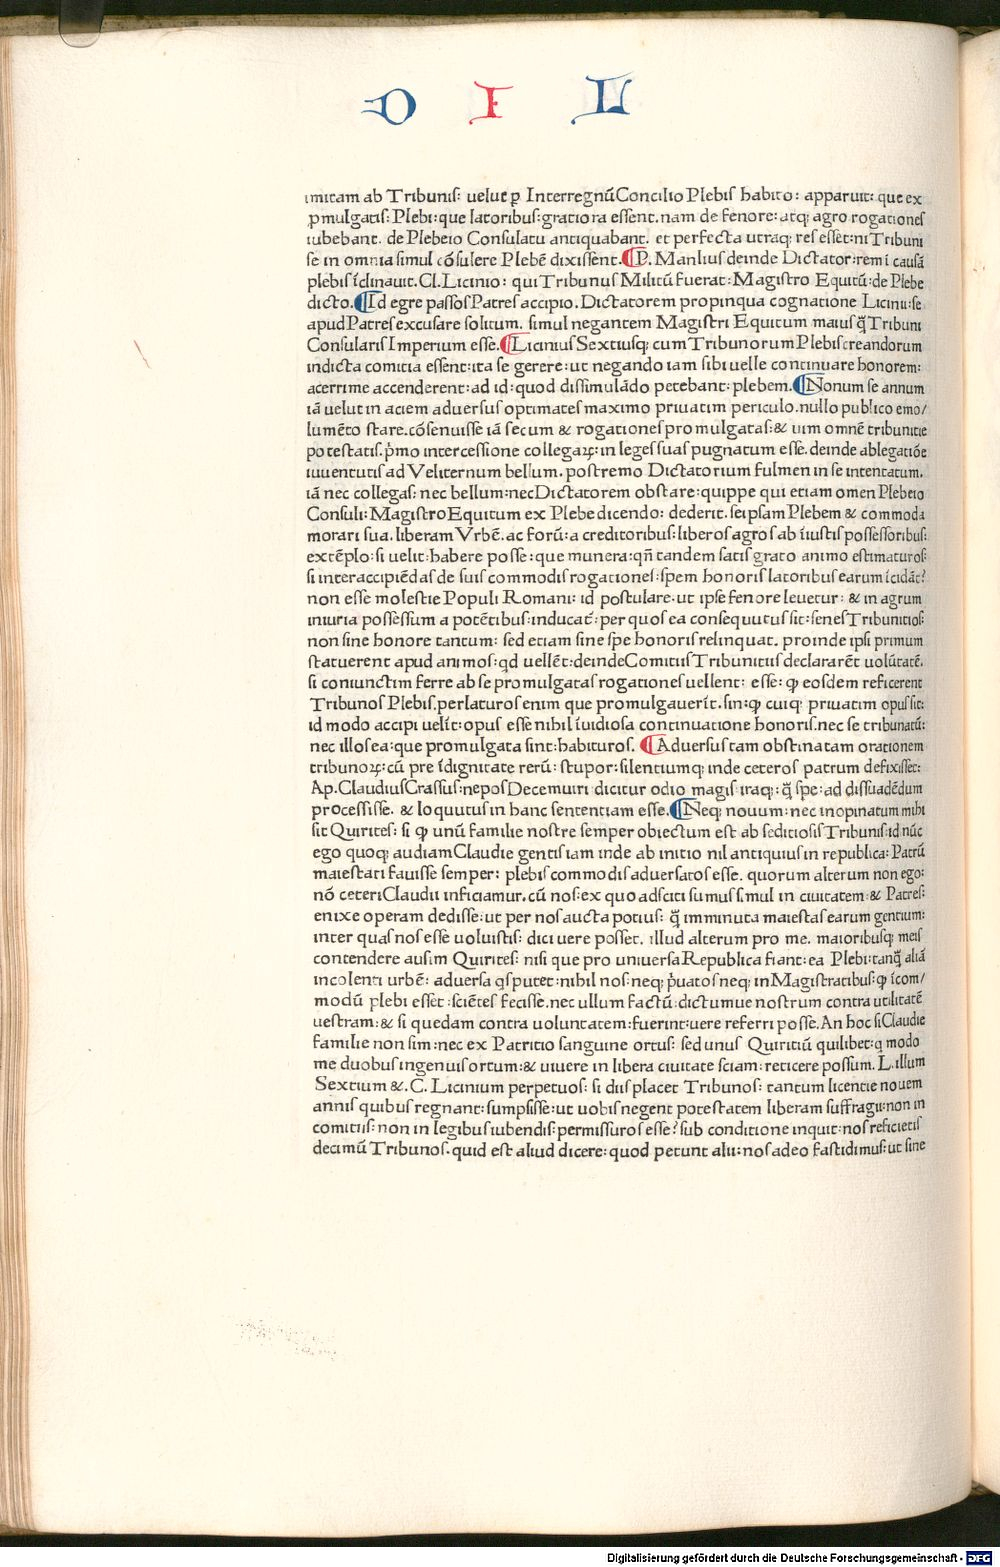 D I L
imitam ab Tribunis: velut ꝑ InterregnũConcilio Plebis habito: apparuit: que ex
ꝓmulgatis: Plebi: que latoribus: gratiora essent. nam de fenore: atq; agro rogationes
iubebant. de Plebeio Consulatu antiquabant. et perfecta utraq; res esset: ni Tribuni
se in omnia simul cõsulere Plebẽ dixissent. P. Manlius deinde Dictator: rem ĩ causã
plebis ĩclinauit. Cl. Licinio: qui Tribunus Militũ fuerat: Magistro Equitũ: de Plebe
dicto. Id egre passos Patres accipio. Dictatorem propinqua cognatione Licinii: se
apud Patres excusare solitum. simul negantem Magistri Equitum maius q̃ Tribuni
Consularis Imperium esse. Licinius Sextiusq; cum Tribunorum Plebis creandorum
indicta comitia essent: ita se gerere: ut negando iam sibi uelle continuare honorem:
acerrime accenderent: ad id: quod dissimulãdo petebant: plebem. Nonum se annum
iã uelut in aciem aduersus optimates maximo priuatim periculo. nullo publico emo/
lumẽto stare. cõsenuisse iã secum & rogationes promulgatas: & uim omnẽ tribunitie
potestatis. p̃mo intercessione collegaꝝ: in leges suas pugnatum esse. deinde ablegatiõe
iuuentutis ad Veliternum bellum. postremo Dictatorium fulmen in se intentatum.
iã nec collegas: nec bellum: nec Dictatorem obstare: quippe qui etiam omen Plebeio
Consuli: Magistro Equitum ex Plebe dicendo: dederit. seipsam Plebem & commoda
morari sua. liberam Vrbẽ. ac forũ: a creditoribus: liberos agros ab ĩiustis possessoribus:
extẽplo: si uelit: habere posse: que munera: qñ tandem satis grato animo estimaturos:
si inter accipiẽdas de suis commodis rogationes: spem honoris latoribus earum ĩcidãt?
non esse molestie Populi Romani: id postulare. ut ipse fenore leuetur: & in agrum
iniuria possessum a potẽtibus: inducat̃: per quos ea consequutus sit: senes Tribunitios:
non sine honore tantum: sed etiam sine spe honoris relinquat. proinde ipsi primum
statuerent apud animos: qd uellẽt: deinde Comitiis Tribunitiis declararẽt uolũtatẽ.
si coniunctim ferre ab se promulgatas rogationes uellent: esse: ꝙ eosdem reficerent
Tribunos Plebis. perlaturos enim que promulgauerĩt. sin: ꝙ cuiq; priuatim opus sit:
id modo accipi uelĩt: opus esse nihil ĩuidiosa continuatione honoris. nec se tribunatũ:
nec illos ea: que promulgata sint: habituros. Aduersus tam obstinatam orationem
tribunoꝝ: cũ pre ĩdignitate rerũ: stupor: silentiumq; inde ceteros patrum defixisset:
Ap. Claudius Crassus: nepos Decemuiri dicitur odio magis iraq;: q̃ spe: ad dissuadẽdum
processisse. & loquutus in hanc sententiam esse. Neq; nouum: nec inopinatum mihi
sit Quirites: si ꝙ unũ familie nostre semper obiectum est ab seditiosis Tribunis: id nũc
ego quoq; audiam Claudie gentis iam inde ab initio nil antiquius in republica: Patrũ
maiestati fauisse semper: plebis commodis aduersatos esse. quorum alterum non ego:
nõ ceteri Claudii inficiamur. cũ nos: ex quo adsciti sumus simul in ciuitatem: & Patres:
enixe operam dedisse: ut per nos aucta potius: q̃ imminuta maiestas earum gentium:
inter quas nos esse uoluistis: dici uere posset. illud alterum pro me. maioribusq; meis
contendere ausim Quirites: nisi que pro uniuersa Republica fiant: ea Plebi: tanq̃ aliã
incolenti urbẽ: aduersa qs putet: nihil nos: neq; p̃uatos neq; in Magistratibus: ꝙ ĩcom/
modũ plebi esset: sciẽtes fecisse. nec ullum factũ: dictumue nostrum contra utilitatẽ
uestram: & si quedam contra uoluntatem: fuerint: uere referri posse. An hoc si Claudie
familie non sim: nec ex Patritio sanguine ortus: sed unus Quiritiũ quilibet: q modo
me duobus ingenuis ortum: & uiuere in libera ciuitate sciam: reticere possum. L. illum
Sextium &. C. Licinium perpetuos: si diis placet Tribunos: tantum licentie nouem
annis quibus regnant: sumpsisse: ut uobis negent potestatem liberam suffragii: non in
comitiis: non in legibus iubendis: permissuros esse? sub conditione inquit: nos reficietis
decimũ Tribunos. quid est aliud dicere: quod petunt alii: nos adeo fastidimus: ut sine
Digitalisierung gefördert durch die Deutsche Forschungsgemeinschaft - DFG